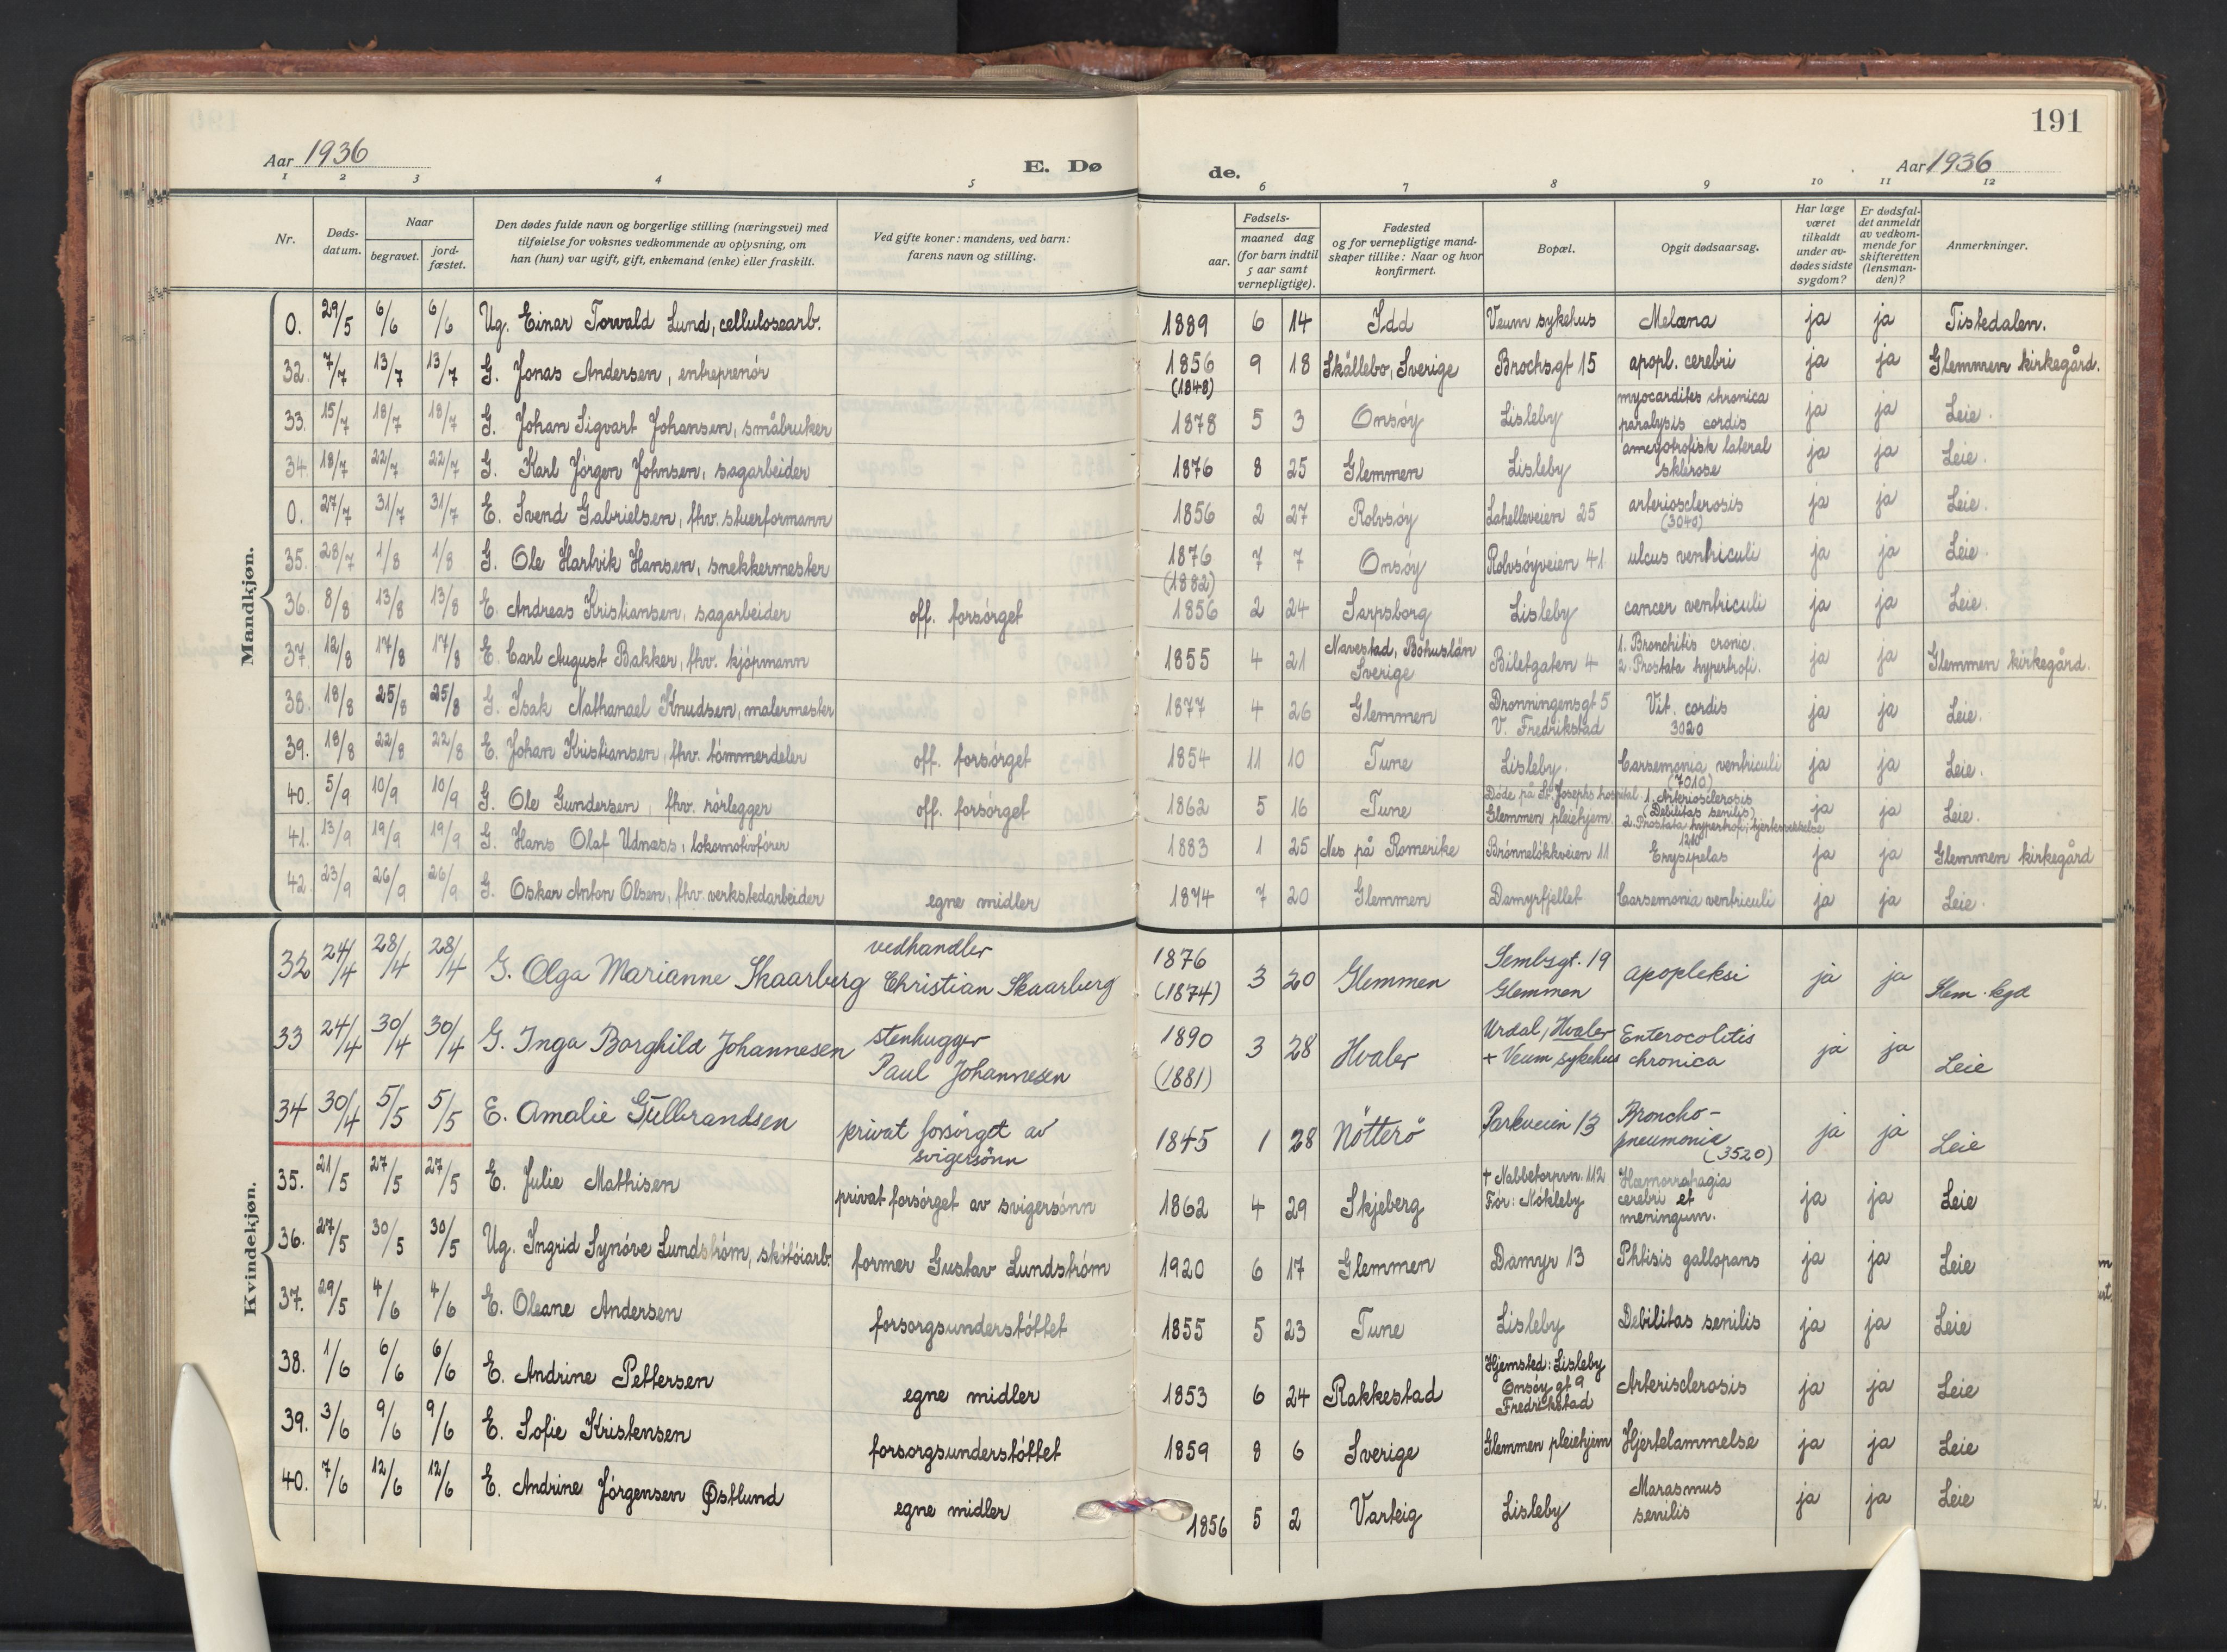 191
Aar 1936 E. Dø de. Aar 1936
1 2 3 4 5 6 7 8 9 10 11 12
Nr. Døds-datum. Naar begravet. jord-fæstet. Den dødes fulde navn og borgerlige stilling (næringsvei) med tilføielse for voksnes vedkommende av oplysning, om han (hun) var ugift, gift, enkemand (enke) eller fraskilt. Ved gifte koner: mandens, ved barn: farens navn og stilling. aar. Fødsels- maaned dag (for barn indtil 5 aar samt vernepligtige). Fødested og for vernepligtige mandskaper tillike: Naar og hvor konfirmert. Bopæl. Opgit dødsaarsag. Har læge været tilkaldt under av-dødes sidste sygdom? Er dødsfal-det anmeldt av vedkom-mende for skifteretten (lensman-den)? Anmerkninger.
Mandkjøn.
0. 29/5 6/6 6/6 Ug. Einar Torvald Lund, cellulosearb. 1889 6 14 Idd Veum sykehus Melæna ja ja Tistedalen.
32. 7/7 13/7 13/7 G. Jonas Andersen, entreprenör 1856 (1848) 9 18 Skällebo, Sverige Brochsgt 15 apopl. cerebri ja ja Glemmen kirkegård.
33. 15/7 18/7 18/7 G. Johan Sigvart Johansen, småbruker 1878 5 3 Onsöy Lisleby myocardites chronica paralysis cordis ja ja Leie.
34. 18/7 22/7 22/7 G. Karl Jörgen Johnsen, sagarbeider 1876 8 25 Glemmen Lisleby ameyotrofisk lateral sklerose ja ja Leie.
0. 27/7 31/7 31/7 E. Svend Gabrielsen, fhv. stuerformann 1856 2 27 Rolvsöy Lahelleveien 25 arteriosclerosis (3040) ja ja Leie.
35. 28/7 1/8 1/8 G. Ole Hartvik Hansen, snekkermester 1876 (1882) 7 7 Onsöy Rolvsöyveien 41 ulcus ventriculi ja ja Leie.
36. 8/8 13/8 13/8 E. Andreas Kristiansen, sagarbeider off. forsörget 1856 2 24 Sarpsborg Lisleby cancer ventriculi ja ja Leie.
37. 12/8 17/8 17/8 E. Carl August Bakker, fhv. kjöpmann 1855 4 21 Navestad, Bohuslän Sverige Biletgaten 4 1. Bronchitis cronic. 2. Prostata hypertrofi. ja ja Glemmen kirkegård.
38. 18/8 25/8 25/8 G. Isak Nathanael Knudsen, malermester 1877 4 26 Glemmen Dronningensgt 5 V. Fredrikstad Vit. cordis 3020 ja ja Leie.
39. 18/8 22/8 22/8 E. Johan Kristiansen, fhv. tömmerdeler off. forsörget 1854 11 10 Tune Lisleby. Carsemonia ventriculi (7010) ja ja Leie.
40. 5/9 10/9 10/9 G. Ole Gundersen, fhv. rörlegger off. forsörget 1862 5 16 Tune Döde på St. Josephs hospital Glemmen pleiehjem. 1. Arteriosclerosis (Debilitas senilis) 2. Prostata hypertrofi; ja ja Leie.
41. 13/9 19/9 19/9 G. Hans Olaf Udnæss, lokomotivförer 1883 1 25 Nes på Romerike Brönnelökkveien 11 Erysipelas ja ja Glemmen kirkegård
42. 23/9 26/9 26/9 G. Oskar Anton Olsen, fhv. verkstedarbeider egne midler 1874 7 20 Glemmen Damyrfjellet Carsemonia ventriculi ja ja Leie.
Kvindekjøn.
32 24/4 28/4 28/4 G. Olga Marianne Skaarberg vedhandler Christian Skaarberg 1876 (1874) 3 20 Glemmen Sembsgt. 19 Glemmen apopleksi ja ja Glem. kgd
33 24/4 30/4 30/4 G. Inga Borghild Johannesen stenhugger Paul Johannesen 1890 (1881) 3 28 Hvaler Urdal, Hvaler + Veum sykehus Enterocolitis chronica ja ja Leie
34 30/4 5/5 5/5 E. Amalie Gulbrandsen privat forsörget av svigersönn 1845 1 28 Nötterö Parkveien 13 Broncho-pneumonie (3520) ja ja Leie
35. 21/5 27/5 27/5 E. Julie Mathisen privat forsörget av svigersönn 1862 4 29 Skjeberg + Nabbetorpvn. 112 För: Mökleby Hæmorrahagia cerebri et meningum. ja ja Leie
36. 27/5 30/5 30/5 Ug. Ingrid Synöve Lundström, skötöiarb. former Gustav Lundström 1920 6 17 Glemmen Damyr 13 Phtisis gallopans ja ja Leie
37. 29/5 4/6 4/6 E. Oleane Andersen forsorgsunderstöttet 1855 5 23 Tune Lisleby Debilitas senilis ja ja Leie
38. 1/6 6/6 6/6 E. Andrine Pettersen egne midler 1853 6 24 Rakkestad Hjemsted: Lisleby Onsöy gt 9 Fredrikstad Arterisclerosis ja ja Leie
39. 3/6 9/6 9/6 E. Sofie Kristensen forsorgsunderstöttet 1859 8 6 Sverige Glemmen pleiehjem Hjertelammelse ja ja Leie
40. 7/6 12/6 12/6 E. Andrine Jörgensen Östlund egne midler 1856 5 2 Varteig Lisleby Marasmus senilis ja ja Leie